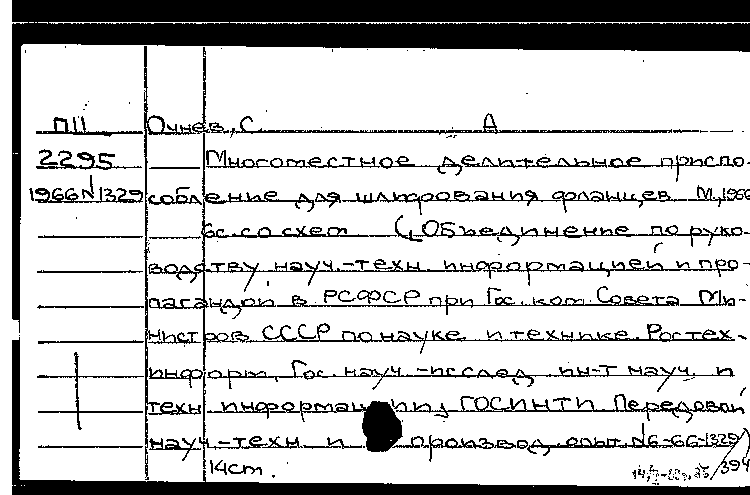 П11 Очнев, С. А
2295 Многоместное делительное приспо-
1966 N1329 собление для шлифования фланцев М, 1966
6с. со схем (Объединение по руко-
водству науч.-техн. информацией и про-
пагандой в РСФСР при Гос. ком. Совета Ми-
нистров СССР по науке и технике. Ростех-
информ, Гос. науч.-исслед, ин-т науч. и
техн информации, ГОСИНТИ Передовой
науч-техн и производ, опыт. N6-66-1329/
14 cm. /394